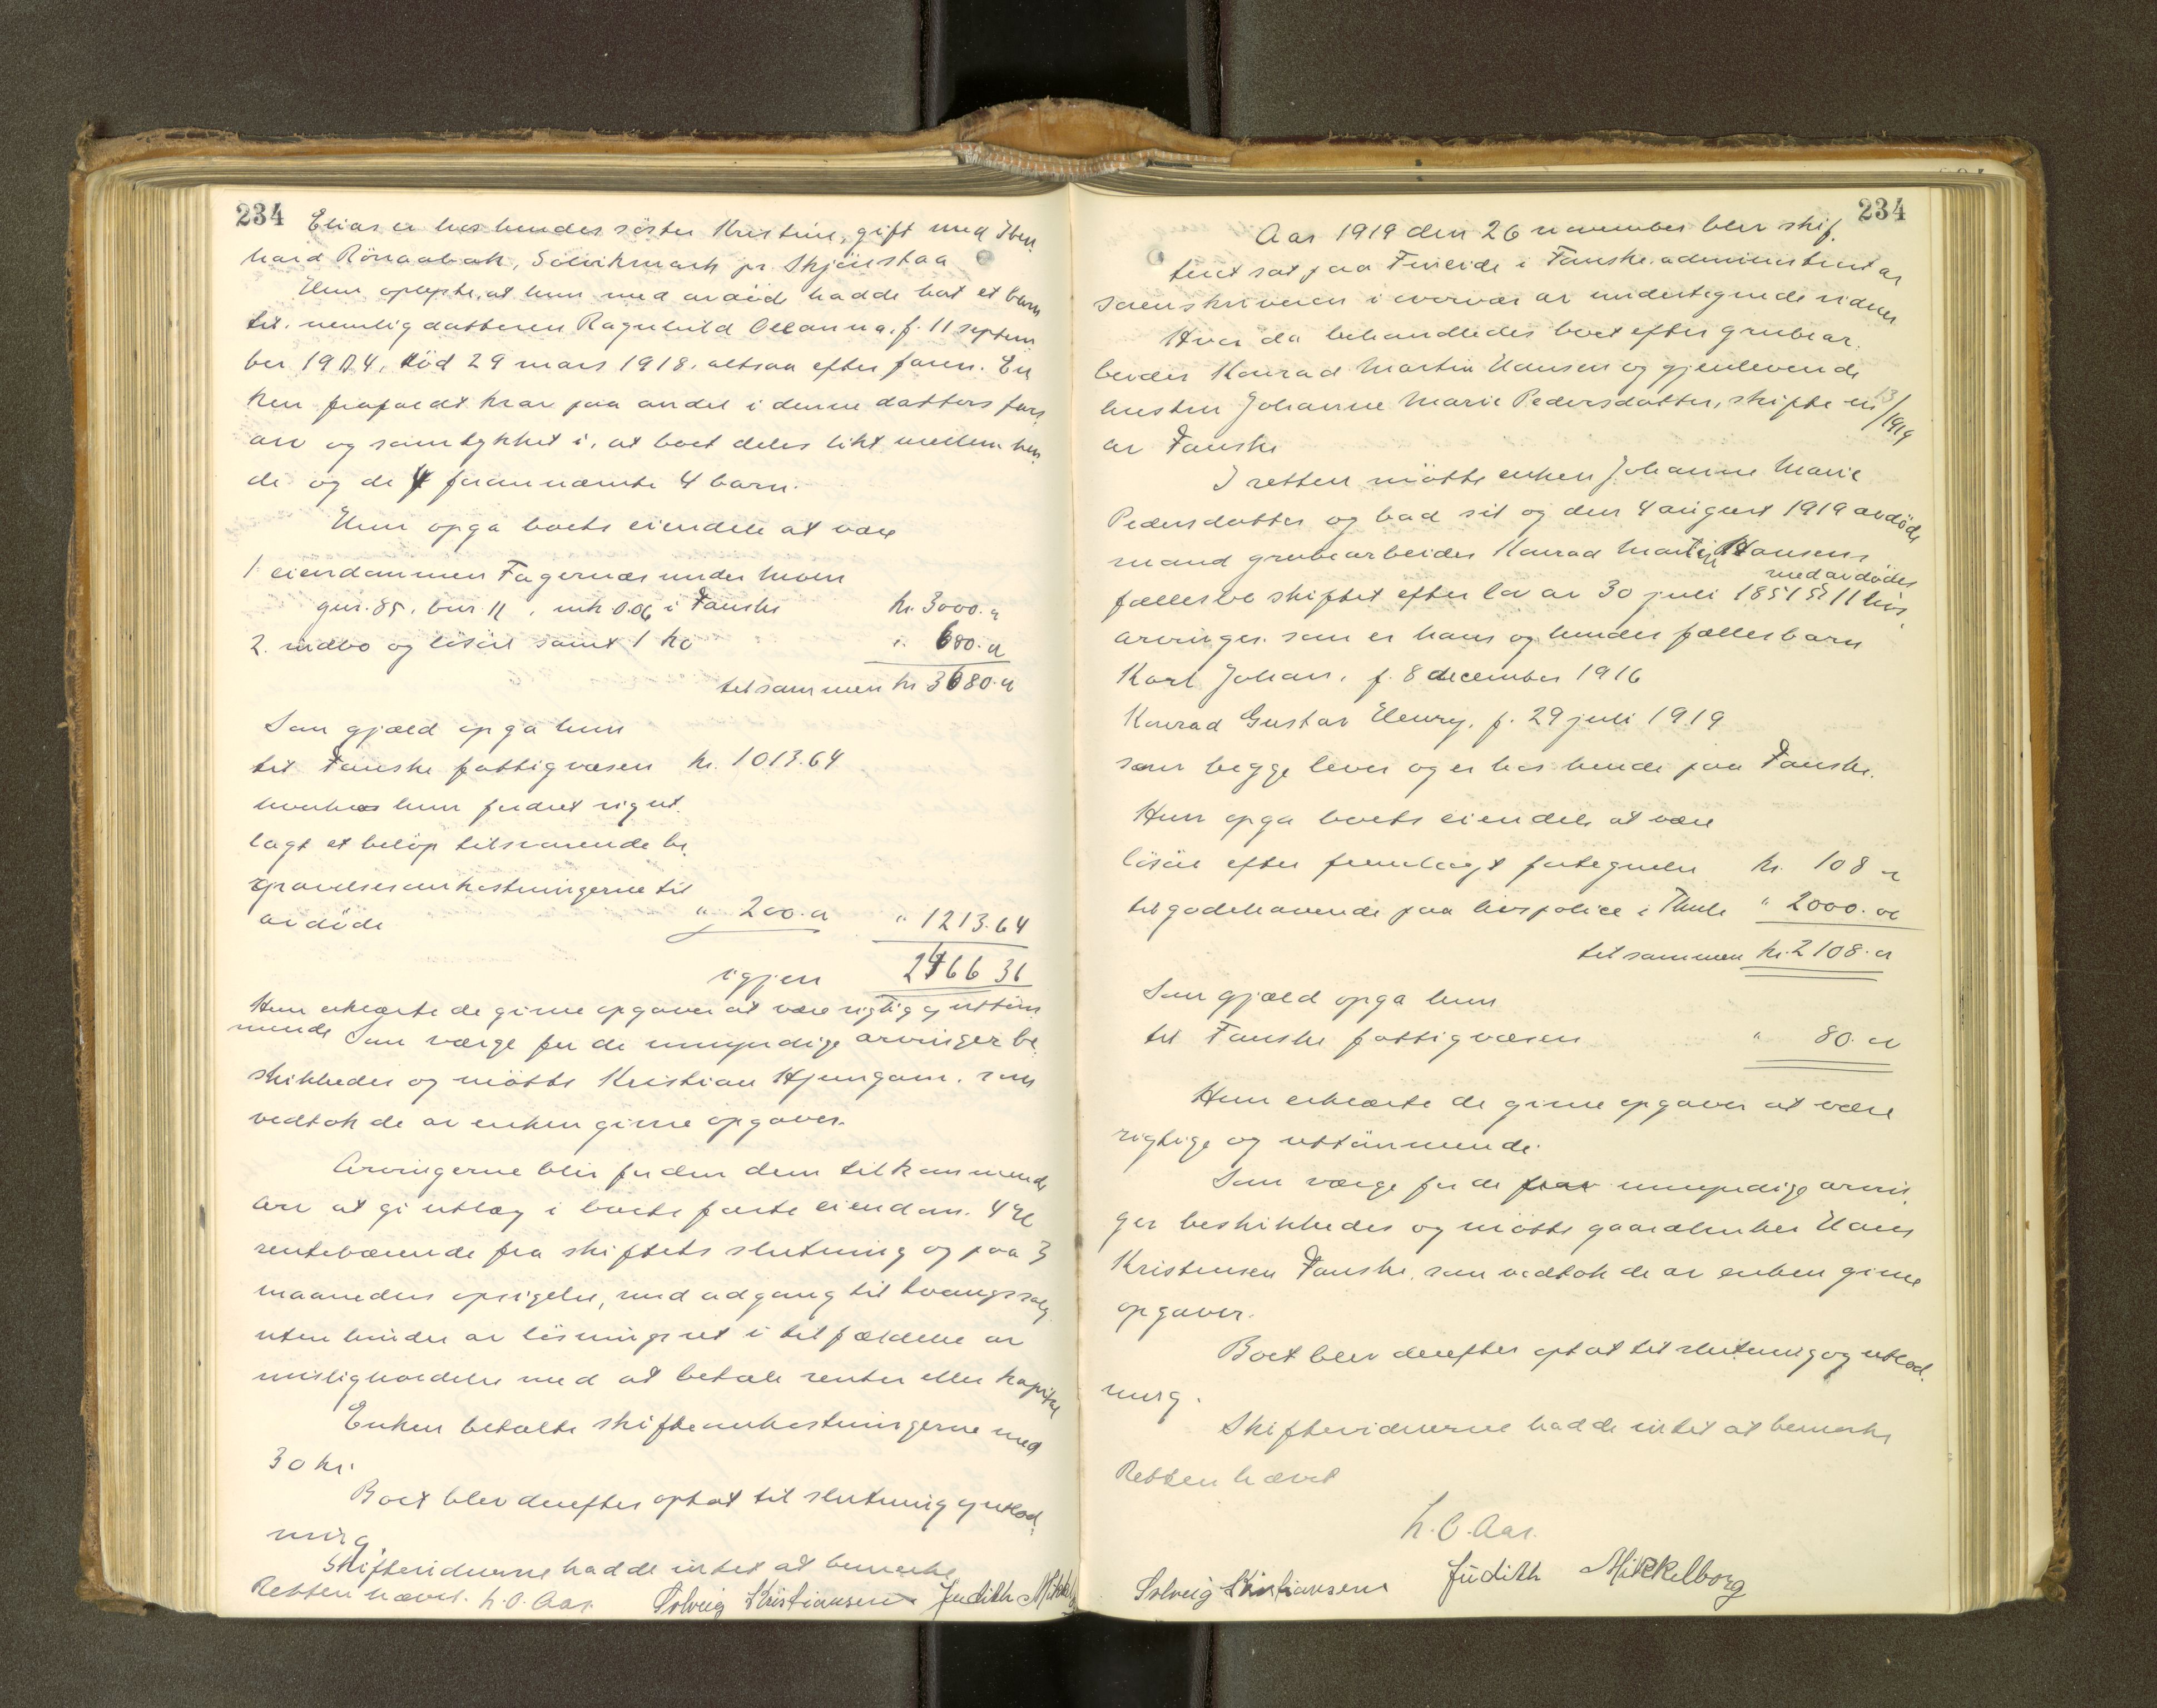 234
Elias er hos hendes søster Kristine, gift med Iben
hard Rönaabak, Solvikmark pr. Skjönstaa
Hun oplyste, at hun med avdöde hadde hat et barn
til. nemlig datteren Ragnhild Oleanna, f. 11 septem
ber 1904, död 29 mars 1918, altsaa efter faren. En
ken frafaldt krav paa andel i denne datters fars
arv og samtykket i, at boet deles likt mellem hen
de og de 4 forannævnte 4 barn.
Hun opga boets eiendele at være
1 eiendommen Fagernæs under Moen
gnr. 85, bnr 11, mk 0.06 i Fauske kr. 3000.
2. indbo og lösöre samt 1 ko " 680.
tilsammen kr 3680.
Som gjæld opga hun
til Fauske fattigvæsen kr. 1013.64
hvorhos hun fordret sig ut
lagt et beløp tilsvarende be
gravelsesomkostningerne til
avdöde " 200. " 1213.64
igjen 2466 36
Hun erklærte de givne opgaver at være rigtig og uttöm
mende Som værge for de umyndige arvinger be
skikkedes og mötte Kristian Hjemgam, som
vedtok de av enken givne opgaver.
Arvingerne blir for den dem tilkommende
arv at gi utlæg i boets faste eiendom. 4 %
rentebærende fra skiftets slutning og paa 3
maaneders opsigelse, med adgang til tvangssalg
uten hinder av lösningsret i tilfældene av
misligholdelse med at betale renter eller kapital
Enken betalte skifteomkostningerne med
30 kr.
Boet blev derefter optat til slutning og utlod
ning
Skiftevidnerne hadde intet at bemerke
Retten hævet. h.O.Aas. Solveig Kristiansen Judith Mikkelb
234
Aar 1919 den 26 november blev skif
teret sat paa Finneide i Fauske administrert av
sorenskriveren i overvær av undertegnede vidner
Hvor da behandledes boet efter grubear
beider Konrad Martin Hansen og gjenlevende
hustru Johanne Marie Pedersdatter, skifte nr 13/1919
av Fauske
I retten mötte enken Johanne Marie
Pedersdatter og bad sit og den 4 august 1919 avdöde
mand grubearbeider Konrad Martin Hansens
fællesbo skiftet efter lov av 30 juli 1851 § 11 med avdödes livs
arvinger. som er hans og hendes fællesbarn
Karl Johan, f. 8 december 1916
Konrad Gustav Henry, f. 29 juli 1919
som begge lever og er hos hende paa Fauske.
Hun opga boets eiendele at være
lösöre efter fremlagt fortegnelse kr. 108
tilgodehavende paa livspolice i Thule " 2000.
tilsammen kr. 2108.
Som gjæld opga hun
til Fauske fattigvæsen " 80.
Hun erklærte de givne opgaver at være
rigtige og uttömmende.
Som værge for de umyndige arvin
ger beskikkedes og mötte gaardbruker Hans
Kristensen Fauske, som vedtok de av enken givne
opgaver.
Boet blev derefter optat til slutning og utlod
ning.
Skiftevidnerne hadde intet at bemerke
Retten hævet
h.O.Aas.
Solveig Kristiansen Judith Mikkelborg